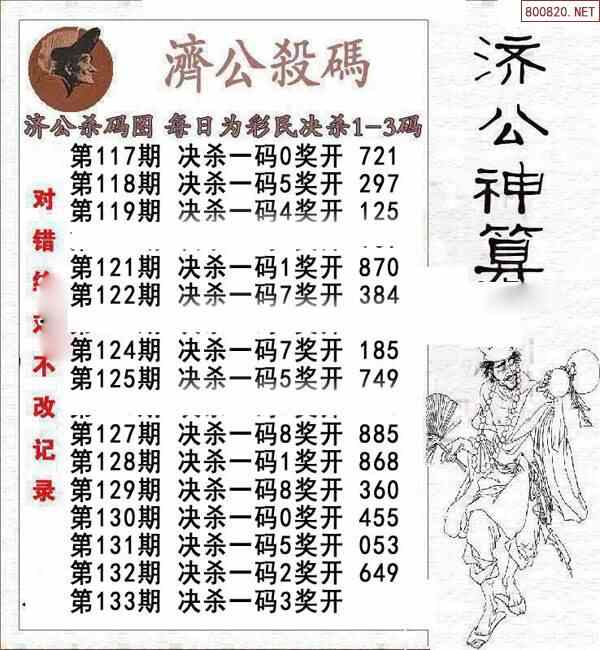 800820.NET
濟公殺碼
济公杀码图 每日为彩民决杀1-3码
第117期 决杀一码0奖开 721
第118期 决杀一码5奖开 297
第119期 决杀一码4奖开 125
第121期 决杀一码1奖开 870
第122期 决杀一码7奖开 384
第124期 决杀一码7奖开 185
第125期 决杀一码5奖开 749
第127期 决杀一码8奖开 885
第128期 决杀一码1奖开 868
第129期 决杀一码8奖开 360
第130期 决杀一码0奖开 455
第131期 决杀一码5奖开 053
第132期 决杀一码2奖开 649
第133期 决杀一码3奖开
对错不改记录
济公神算